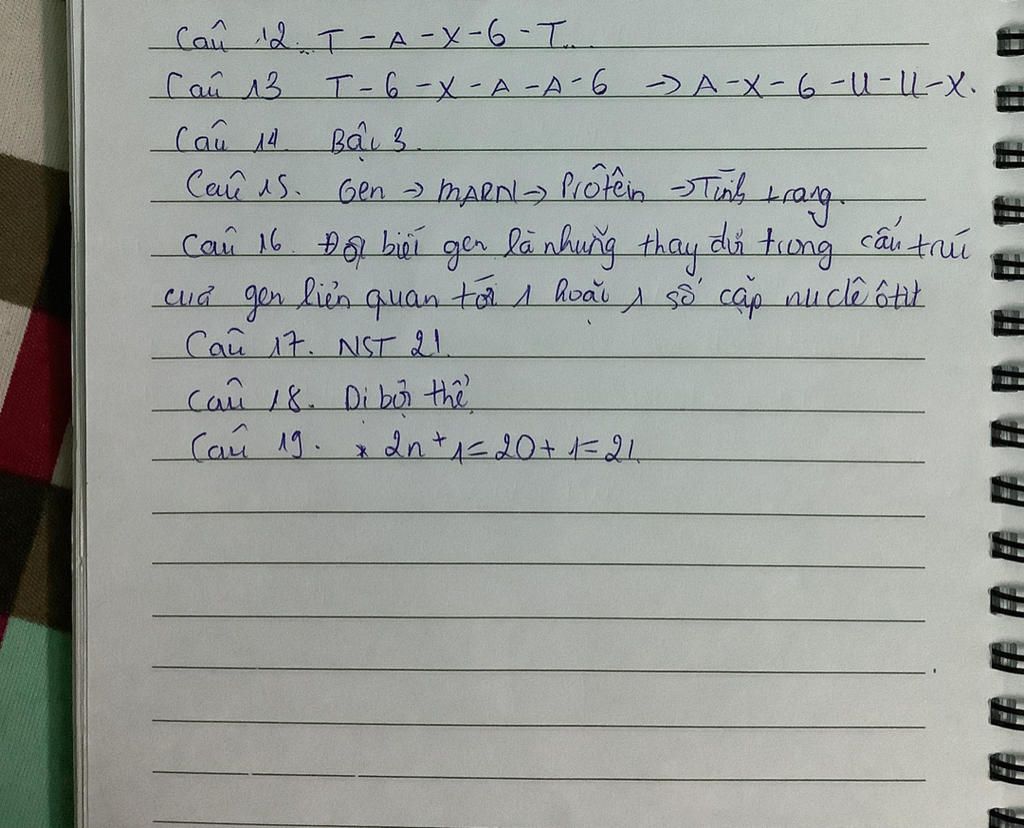 Câu 12. T - A - X - G - T...
Câu 13 T - G - X - A - A - G → A - X - G - U - U - X.
Câu 14. Bậc 3.
Câu 15. Gen → mARN → Prôtêin → Tính trạng.
Câu 16. Đột biến gen là những thay đổi trong cấu trúc
của gen liên quan tới 1 hoặc 1 số cặp nuclêôtit
Câu 17. NST 21.
Câu 18. Dị bội thể.
Câu 19. * 2n + 1 = 20 + 1 = 21.